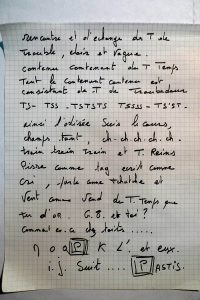 rencontre et d'échange du T de
trouble, claire et vague.
contenu contenant du T Temps
Tant le contenant contenu est
consistant de T de Troubadour
TS- TSS - TSTSTS TSSSS - TS'ST.
ainsi l'odissée Suis le cours,
champs tant, ch-ch.ch.ch.ch.
train train train et T. Reims
Pisse comme tag écrit comme
cri, parle comme
Vent comme Vend du T. Temps que
tu d'OR. G.B. et toi?
comment c. a des toits .....
n o a P K L'. et eux.
i.j. Suit .... PASTIS.